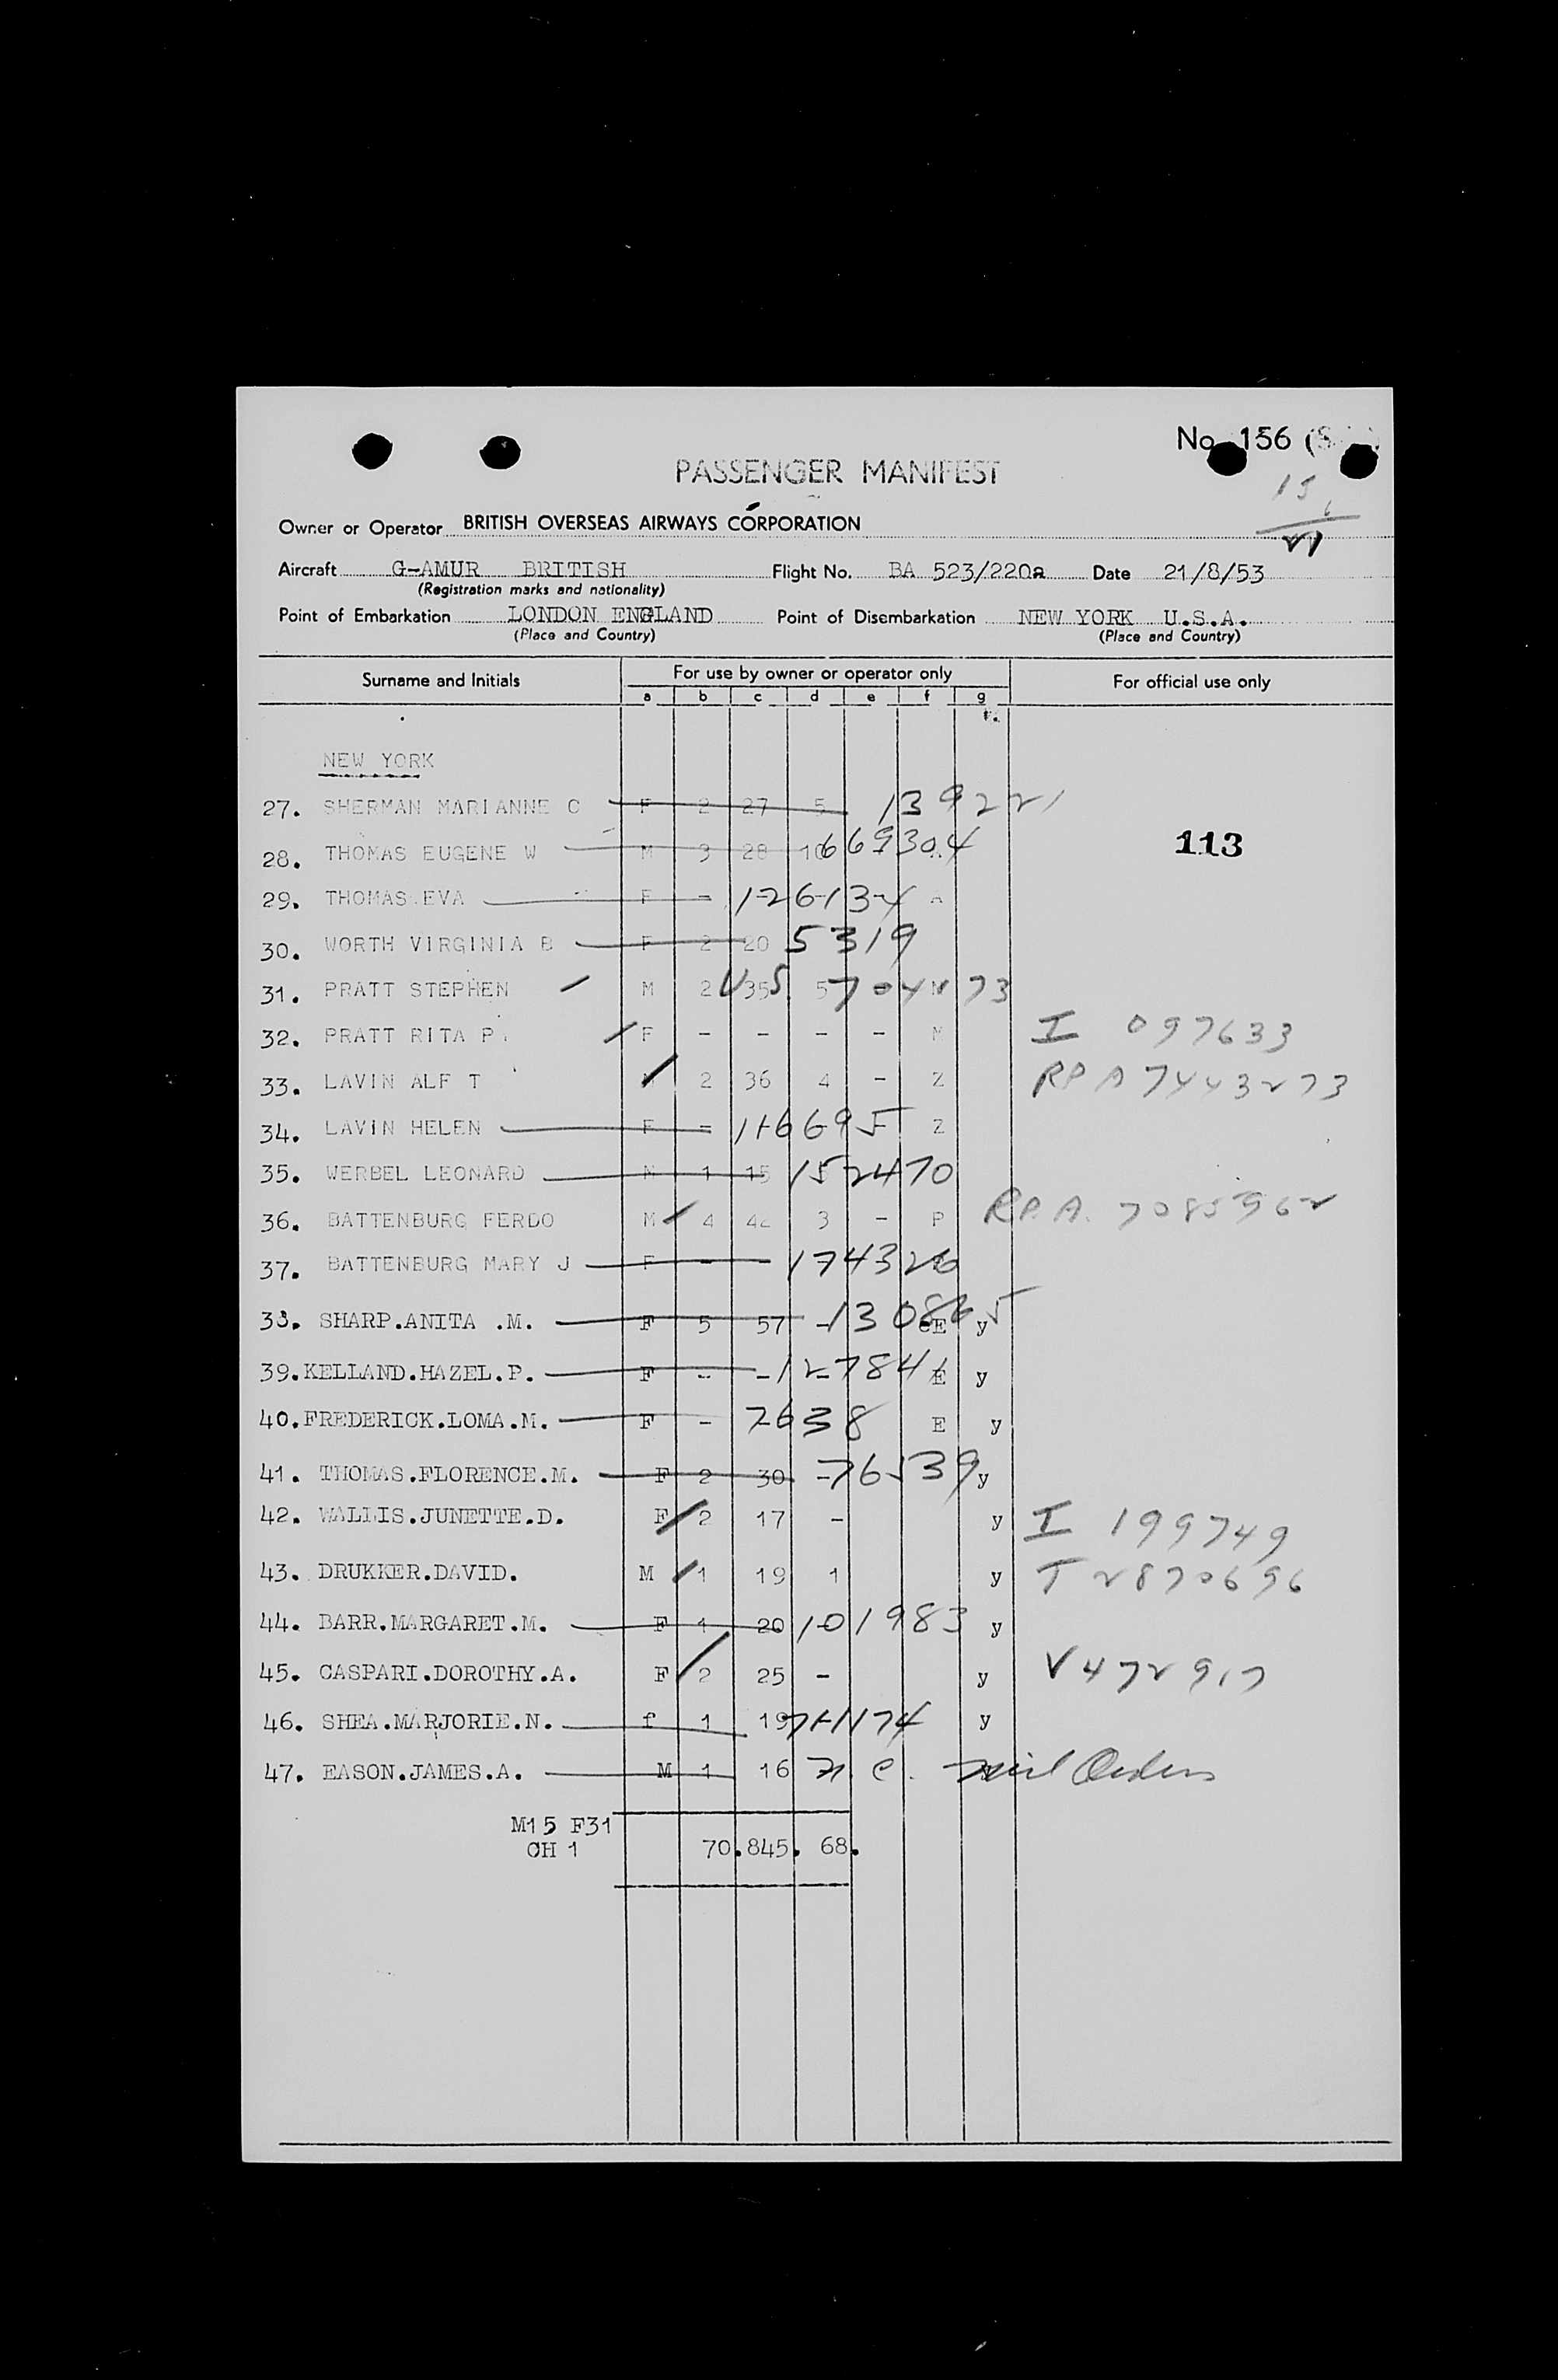 No 156
PASSENGER MANIFEST
15
6
21
Owner or Operator BRITISH OVERSEAS AIRWAYS CORPORATION
Aircraft G-AMUR BRITISH Flight No. BA 523/220a Date 21/8/53
(Registration marks and nationality)
Point of Embarkation LONDON ENGLAND Point of Disembarkation NEW YORK U.S.A.
(Place and Country) (Place and Country)
Surname and Initials For use by owner or operator only For official use only
a b c d e f g
NEW YORK
27. SHERMAN MARIANNE C F 2 27 5 139221
28. THOMAS EUGENE W M 3 28 10 669304
113
29. THOMAS.EVA F - 126134 A
30. WORTH VIRGINIA B F 2 20 5319
31. PRATT STEPHEN M 2 35 5 US 704273
32. PRATT RITA P. F - - - - M I 097633
33. LAVIN ALF T M 2 36 4 - Z RP A 7443273
34. LAVIN HELEN F - 116695 Z
35. WERBEL LEONARD M 1 15 152470
36. BATTENBURG FERDO M 4 42 3 - P R.P.A. 7085362
37. BATTENBURG MARY J F - 174326
38. SHARP.ANITA .M. F 5 57 - 130865 E y
39.KELLAND.HAZEL.P. F - - 127841 E y
40.FREDERICK.LOMA.M. F - 7638 E y
41. THOMAS.FLORENCE.M. F 2 30 - 76539 y
42. WALLIS.JUNETTE.D. F 2 17 - y I 199749
43. DRUKKER.DAVID. M 1 19 1 y T 2870696
44. BARR.MARGARET.M. F 1 20 101983 y
45. CASPARI.DOROTHY.A. F 2 25 - y V472917
46. SHEA.MARJORIE.N. f 1 19 711174 y
47. EASON.JAMES.A. M 1 16 N. C. Mil Orders
M15 F31
CH 1 70.845. 68.